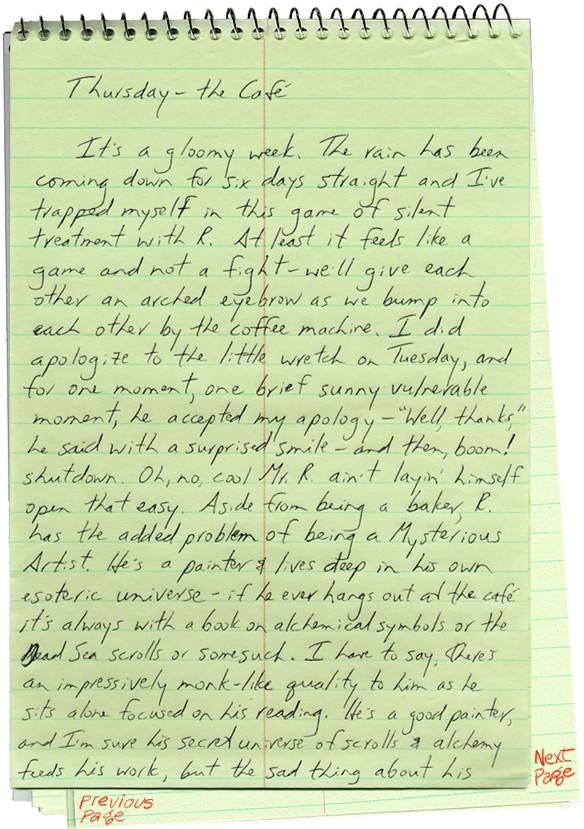 Thursday - the Café
It's a gloomy week. The rain has been
coming down for six days straight and I've
trapped myself in this game of silent
treatment with R. At least it feels like a
game and not a fight - we'll give each
other an arched eyebrow as we bump into
each other by the coffee machine. I did
apologize to the little wretch on Tuesday, and
for one moment, one brief sunny vulnerable
moment, he accepted my apology - "Well, thanks,"
he said with a surprised smile - and then, boom!
shutdown. Oh, no, cool Mr. R. ain't layin' himself
open that easy. Aside from being a baker, R.
has the added problem of being a Mysterious
Artist. He's a painter & lives deep in his own
esoteric universe - if he ever hangs out at the café
it's always with a book on alchemical symbols or the
Dead Sea scrolls or somesuch. I have to say, there's
an impressively monk-like quality to him as he
sits alone focused on his reading. He's a good painter,
and I'm sure his secret universe of scrolls & alchemy
feeds his work, but the sad thing about his
Next
Page
Previous
Page